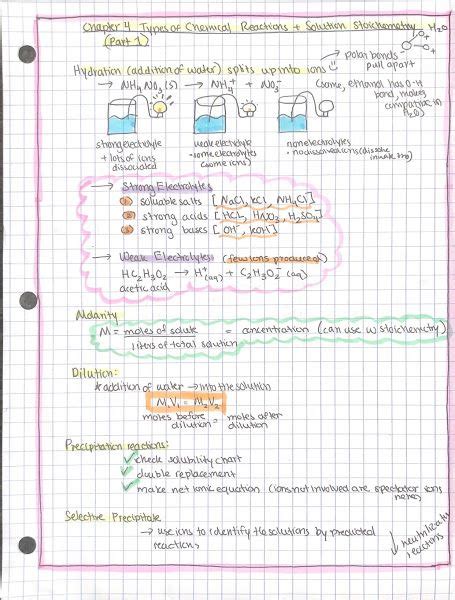 Chapter 4 Types of Chemical Reactions + Solution Stoichemetry
(Part 1)
H₂O
polar bonds
pull apart
Hydration (addition of water) splits up into ions
→ NH₄NO₃(s) → NH₄⁺ + NO₃⁻
(some, ethanol has O-H
bond, makes
compatible w
H₂O)
strong electrolyte
+ lots of ions
dissociated
weak electrolyte
- some electrolytes
(some ions)
nonelectrolytes
• no dissolved ions (dissolve
→ Strong Electrolytes
① soluable salts [NaCl, KCl, NH₄Cl]
② strong acids [HCl, HNO₃, H₂SO₄]
③ strong bases [OH⁻, KOH]
→ Weak Electrolytes (few ions produced)
HC₂H₃O₂ → H⁺(aq) + C₂H₃O₂⁻(aq)
acetic acid
Molarity
M = moles of solute / liters of total solution = concentration (can use w stoichemetry)
Dilution:
* addition of water → into the solution
M₁V₁ = M₂V₂
moles before dilution = moles after dilution
Precipitation reactions:
✓ check solubility chart
✓ double replacement
✓ make net ionic equation (ions not involved are spectator ions
here)
Selective Precipitate
→ use ions to identify the solutions by predicted
reactions
↓ neutralization
reactions